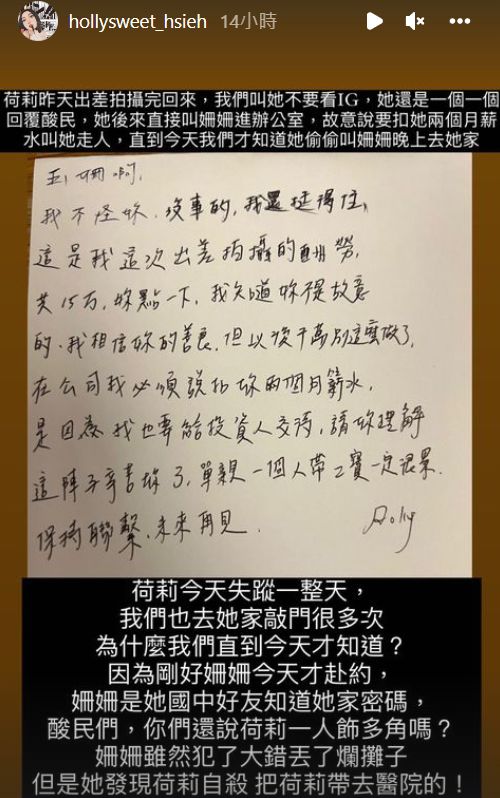 hollysweet_hsieh 14小時
荷莉昨天出差拍攝完回來，我們叫她不要看IG，她還是一個一個
回覆酸民，她後來直接叫姍姍進辦公室，故意說要扣她兩個月薪
水叫她走人，直到今天我們才知道她偷偷叫姍姍晚上去她家
姍啊,
我不怪妳、沒事的,我還挺得住,
這是我這次出差拍攝的酬勞,
共15万,妳點一下,我知道妳不是故意
的、我相信妳的善良,但以後千萬別這麼做了,
在公司我必須說扣妳兩個月薪水,
是因為我也要給投資人交待,請妳理解
這陣子辛苦妳了,單親一個人帶2寶一定很累.
保持聯繫、未來再見.
Holly
荷莉今天失蹤一整天，
我們也去她家敲門很多次
為什麼我們直到今天才知道？
因為剛好姍姍今天才赴約，
姍姍是她國中好友知道她家密碼，
酸民們，你們還說荷莉一人飾多角嗎？
姍姍雖然犯了大錯丟了爛攤子
但是她發現荷莉自殺 把荷莉帶去醫院的！